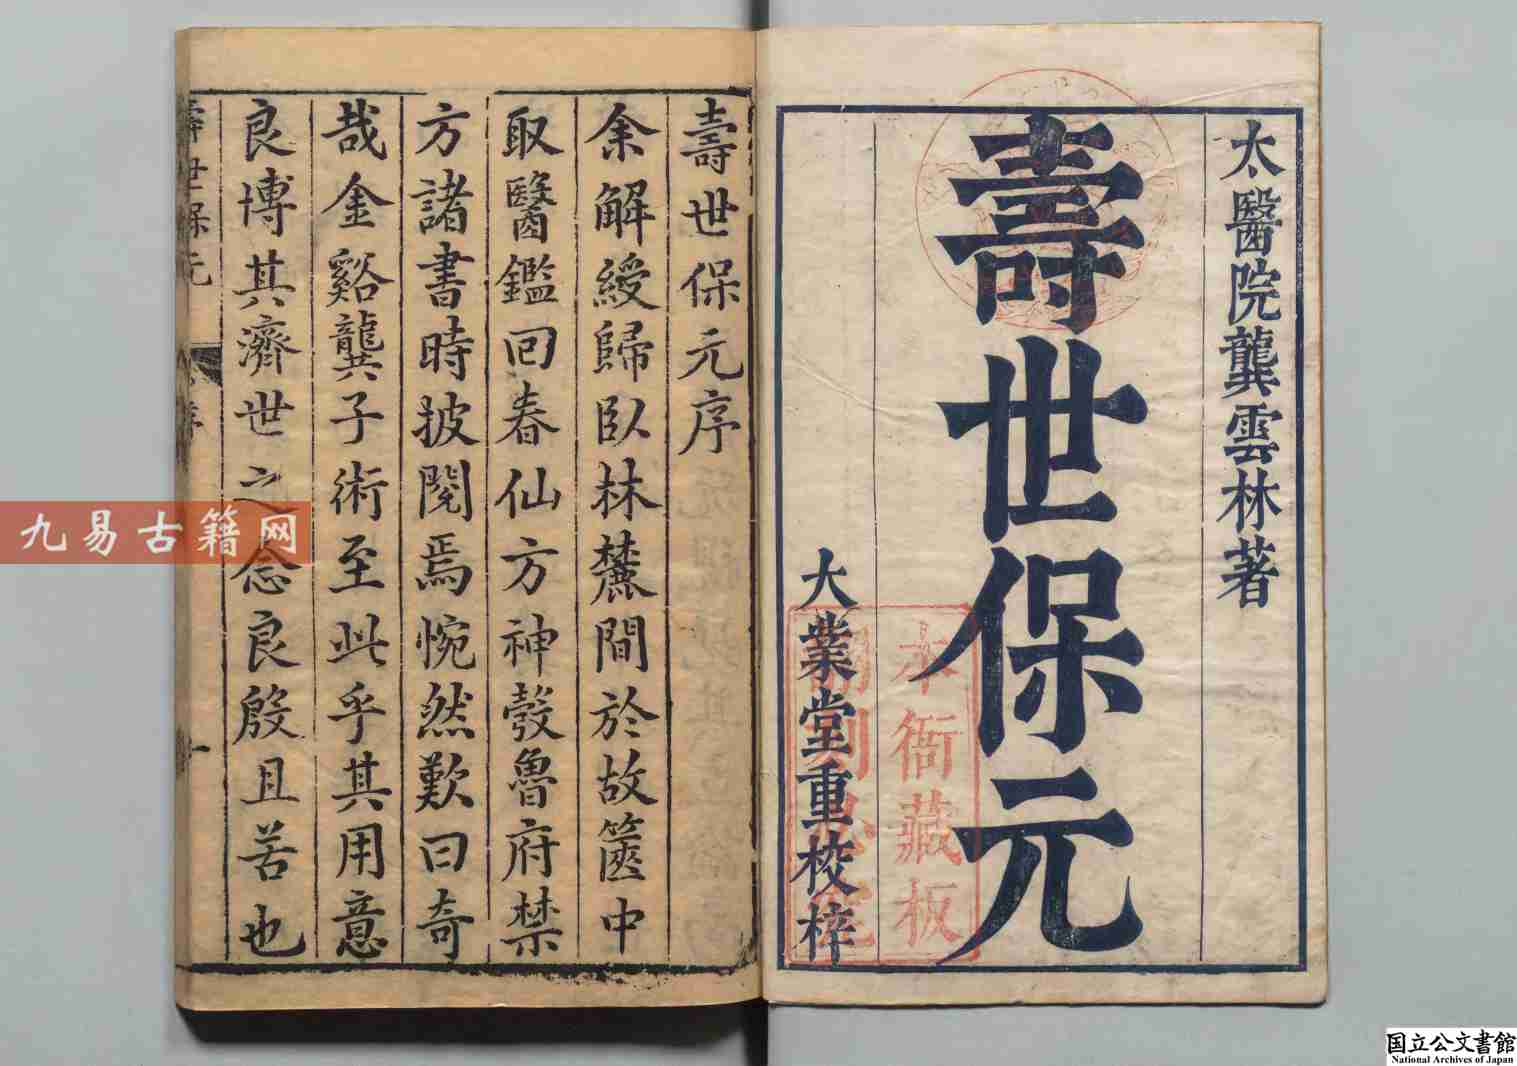 太醫院龔雲林著
壽世保元
大業堂重校梓
本衙藏板
壽世保元序
余解綬歸臥林麓間於故篋中
取醫鑑回春仙方神彀魯府禁
方諸書時披閱焉惋然歎曰奇
哉金谿龔子術至此乎其用意
良博其濟世之念良殷且苦也
壽世保元
序
一
九易古籍网
国立公文書館
National Archives of Japan